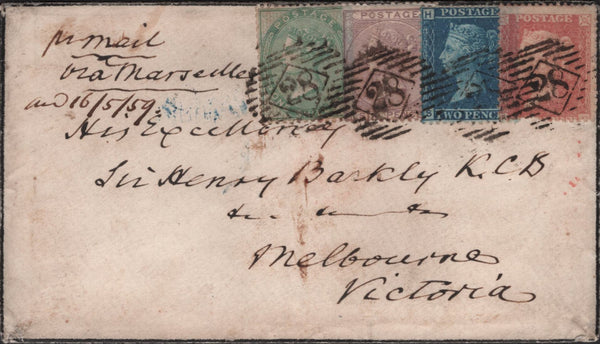 pr mail
via Marseilles
and 16/5/59
POSTAGE
POSTAGE
POSTAGE
POSTAGE
TWO PENCE
28
28
28
His Excellency
Sir Henry Barkly K.C.B
&c &c &c
Melbourne
Victoria